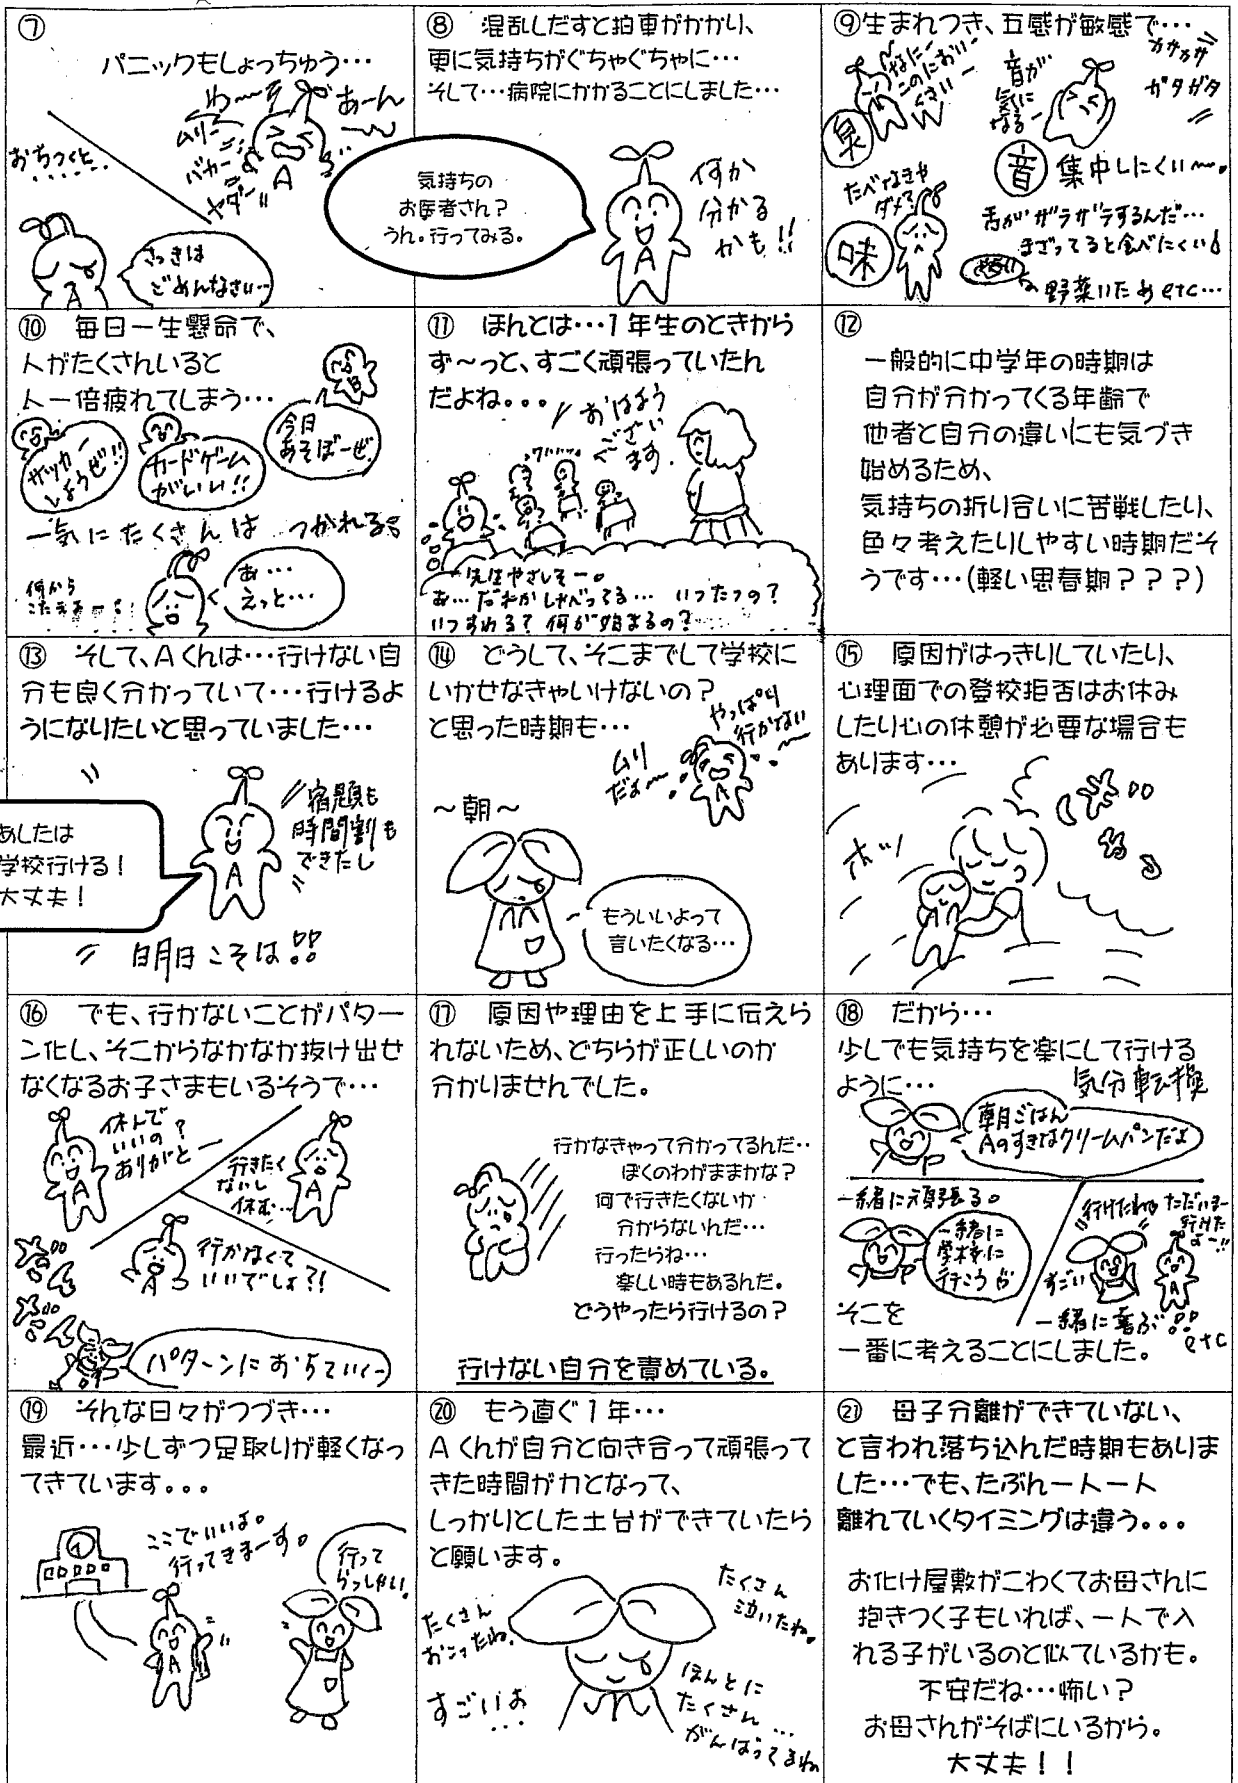 ⑦
パニックもしょっちゅう…
わ～
あーん
ムリー
バカー
ヤダー!!
おちつくと……
さっきは
ごめんなさい…
⑧ 混乱しだすと拍車がかかり、
更に気持ちがぐちゃぐちゃに…
そして…病院にかかることにしました…
気持ちの
お医者さん？
うん。行ってみる。
何か
分かる
かも!!
⑨生まれつき、五感が敏感で…
なにー
このにおい
くさいー
臭
音が
気に
なるー
カサカサ
ガタガタ
音 集中しにくい～。
たべなきゃ
ダメ？
味
舌がザラザラするんだ…
まざってると食べにくい
野菜いためetc…
⑩ 毎日一生懸命で、
人がたくさんいると
人一倍疲れてしまう…
サッカー
しようぜ!!
カードゲーム
がいい!!
今日
あそぼーぜ
一気にたくさんは つかれる
何から
あ…
えっと…
⑪ ほんとは…1年生のときから
ず～っと、すごく頑張っていたん
だよね。。。
おはよう
ござい
ます。
先生やさしそー。
あ…だれかしゃべってる… いつたつの？
いつすわる？ 何が始まるの？
⑫
一般的に中学年の時期は
自分が分かってくる年齢で
他者と自分の違いにも気づき
始めるため、
気持ちの折り合いに苦戦したり、
色々考えたりしやすい時期だそ
うです…(軽い思春期？？？)
⑬ そして、Aくんは…行けない自
分も良く分かっていて…行けるよ
うになりたいと思っていました…
宿題も
時間割も
できたし
あしたは
学校行ける！
大丈夫！
A
明日こそは!!
⑭ どうして、そこまでして学校に
いかせなきゃいけないの？
と思った時期も…
やっぱり
行かない
ムリ
だよ～
～朝～
もういいよって
言いたくなる…
⑮ 原因がはっきりしていたり、
心理面での登校拒否はお休み
したり心の休憩が必要な場合も
あります…
ホッ
⑯ でも、行かないことがパター
ン化し、そこからなかなか抜け出せ
なくなるお子さまもいるそうで…
休んで
いいの？
ありがとー
行きたく
ないし
休む…
行かなくて
いいでしょ?!
パターンにおちていくー
⑰ 原因や理由を上手に伝えら
れないため、どちらが正しいのか
分かりませんでした。
行かなきゃって分かってるんだ‥
ぼくのわがままかな？
何で行きたくないか
分からないんだ…
行ったらね…
楽しい時もあるんだ。
どうやったら行けるの？
行けない自分を責めている。
⑱ だから…
少しでも気持ちを楽にして行ける
ように…
気分転換
朝ごはん
Aのすきなクリームパンだよ
一緒に頑張る。
一緒に
学校に
行こう
行けたね
すごい
ただいまー
行けた
よー!!
一緒に喜ぶ!!
etc
そこを
一番に考えることにしました。
⑲ そんな日々がつづき…
最近…少しずつ足取りが軽くなっ
てきています。。。
ここでいいよ。
行ってきまーす。
行って
らっしゃい
⑳ もう直ぐ1年…
Aくんが自分と向き合って頑張って
きた時間が力となって、
しっかりとした土台ができていたら
と願います。
たくさん
おこったね。
すごいよ
…
たくさん
泣いたね。
ほんとに
たくさん…
がんばってるね
㉑ 母子分離ができていない、
と言われ落ち込んだ時期もありま
した…でも、たぶん一人一人
離れていくタイミングは違う。。。
お化け屋敷がこわくてお母さんに
抱きつく子もいれば、一人で入
れる子がいるのと似ているかも。
不安だね…怖い？
お母さんがそばにいるから。
大丈夫！！